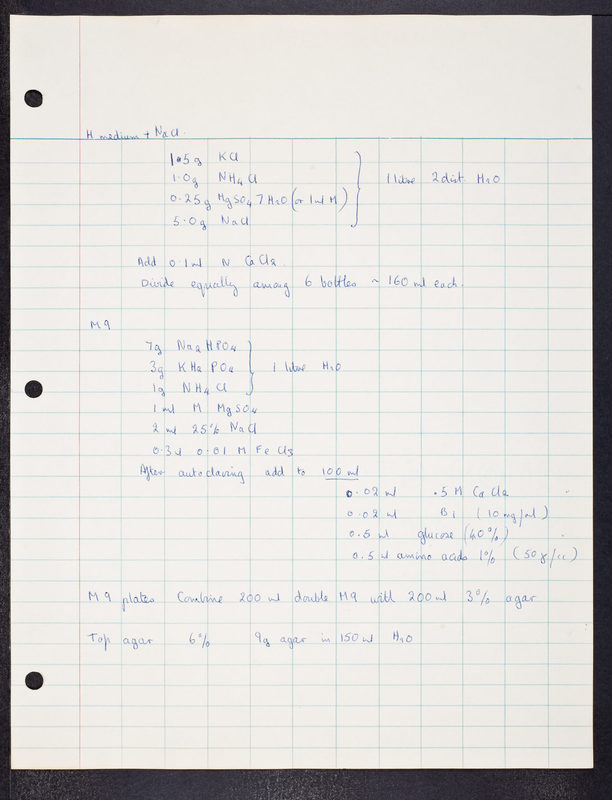 H medium + NaCl.
1.5g KCl
1.0g NH4Cl
0.25g MgSO4 7H2O (or 1ml M)
5.0g NaCl
} 1 litre 2dist. H2O
Add 0.1ml N CaCl2.
Divide equally among 6 bottles ~ 160 ml each.
M9
7g Na2HPO4
3g KH2PO4
1g NH4Cl
} 1 litre H2O
1 ml M MgSO4
2 ml 25% NaCl
0.3 0.01 M FeCl3
After autoclaving add to 100 ml
0.02 ml .5 M CaCl2
0.02 ml B1 (10 mg/ml)
0.5 ml glucose (40%)
0.5 ml amino acids 1% (50γ/cc)
M9 plates Combine 200 ml double M9 with 200 ml 3% agar
Top agar 6% 9g agar in 150 ml H2O